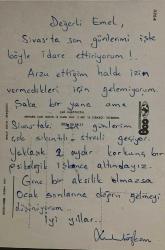 Değerli Emel,
Sivas'ta son günlerimi işte
böyle idare ettiriyorum!..
Arzu ettiğim halde izin
vermedikleri için gelemiyorum.
Şaka bir yana ama
Sivas'taki günlerim
çok sıkıntılı stresli geçiyor.
Yaklaşık 2 aydır korkunç bir
psikolojik işkence altındayız.
Gine bir aksilik olmazsa
Ocak sonlarına doğru gelmeyi
düşünüyorum.
İyi yıllar..